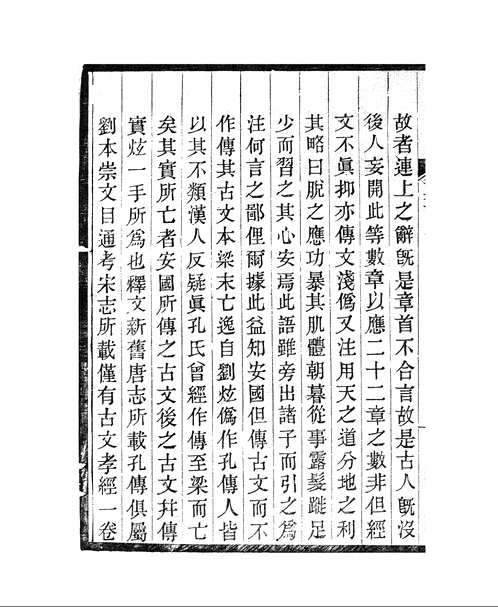 故者連上之辭既是章首不合言故是古人既沒
後人妄開此等數章以應二十二章之數非但經
文不眞抑亦傳文淺僞又注用天之道分地之利
其略曰脫之應功暴其肌體朝暮從事露髮跣足
少而習之其心安焉此語雖旁出諸子而引之爲
注何言之鄙俚爾據此益知安國但傳古文而不
作傳其古文本梁末亡逸自劉炫僞作孔傳人皆
以其不類漢人反疑眞孔氏曾經作傳至梁而亡
矣其實所亡者安國所傳之古文後之古文幷傳
實炫一手所爲也釋文新舊唐志所載孔傳俱屬
劉本崇文目通考宋志所載僅有古文孝經一卷